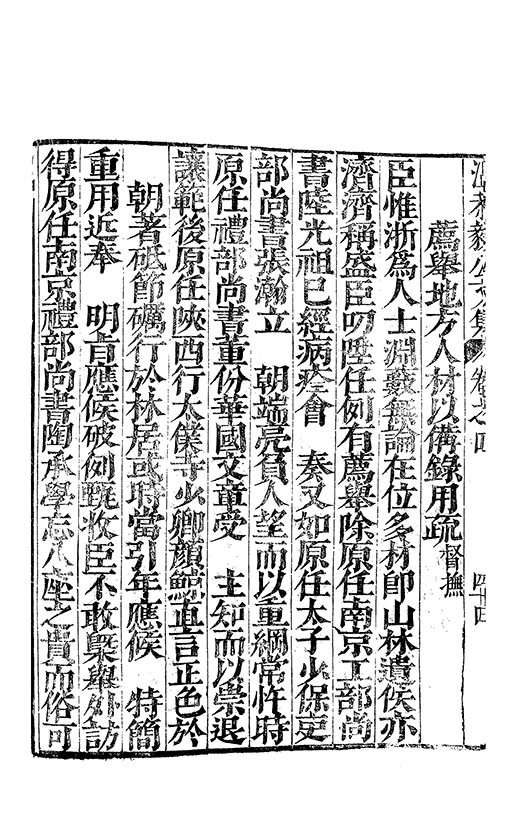 温恭毅公文集 卷之四 四十四
薦舉地方人材以備錄用疏 督撫
臣惟浙為人士淵藪無論在位多材即山林遺佚亦
濟濟稱盛臣叨陞任例有薦舉除原任南京工部尚
書陸光祖已經病痊會 奏又如原任太子少保吏
部尚書張瀚立 朝端亮負人望而以重綱常忤時
原任禮部尚書董份華國文章受 主知而以崇退
讓範後原任陝西行太僕寺少卿顏鯨直言正色於
朝著砥節礪行於林居或時當引年應候 特簡
重用近奉 明旨應候破例甄收臣不敢槩舉外訪
得原任南京禮部尚書陶承學忘八座之貴而俗可